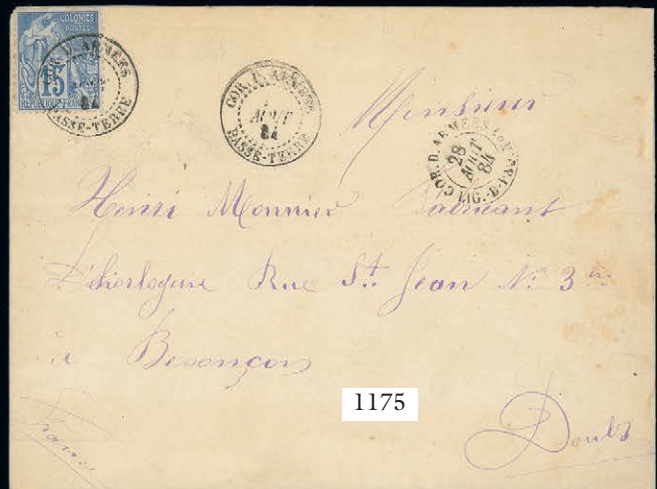 COLONIES
POSTES
15
REPUBLIQUE FRANC
COR. D. ARMEES
84
BASSE-TERRE
COR. D. ARMEES
AOUT
84
BASSE-TERRE
COR. D. ARMEES
LIG.
28
AOUT
84
Monsieur
Henri Monnier
d'horlogerie Rue St. Jean No. 3
à Besançon
1175
Doubs
France